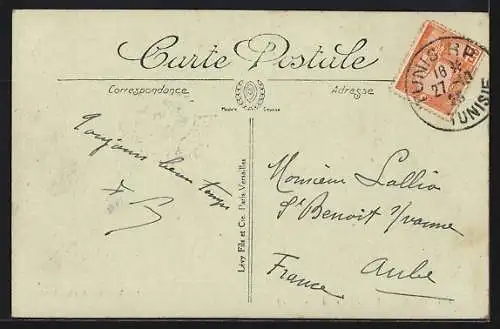 Carte Postale
Correspondance
Adresse
TUNIS R.P.
16
27
TUNISIE
Toujours beau temps
Lévy Fils et Cie, Paris-Versailles
Monsieur Lallia
St Benoit s/Vanne
Aube
France